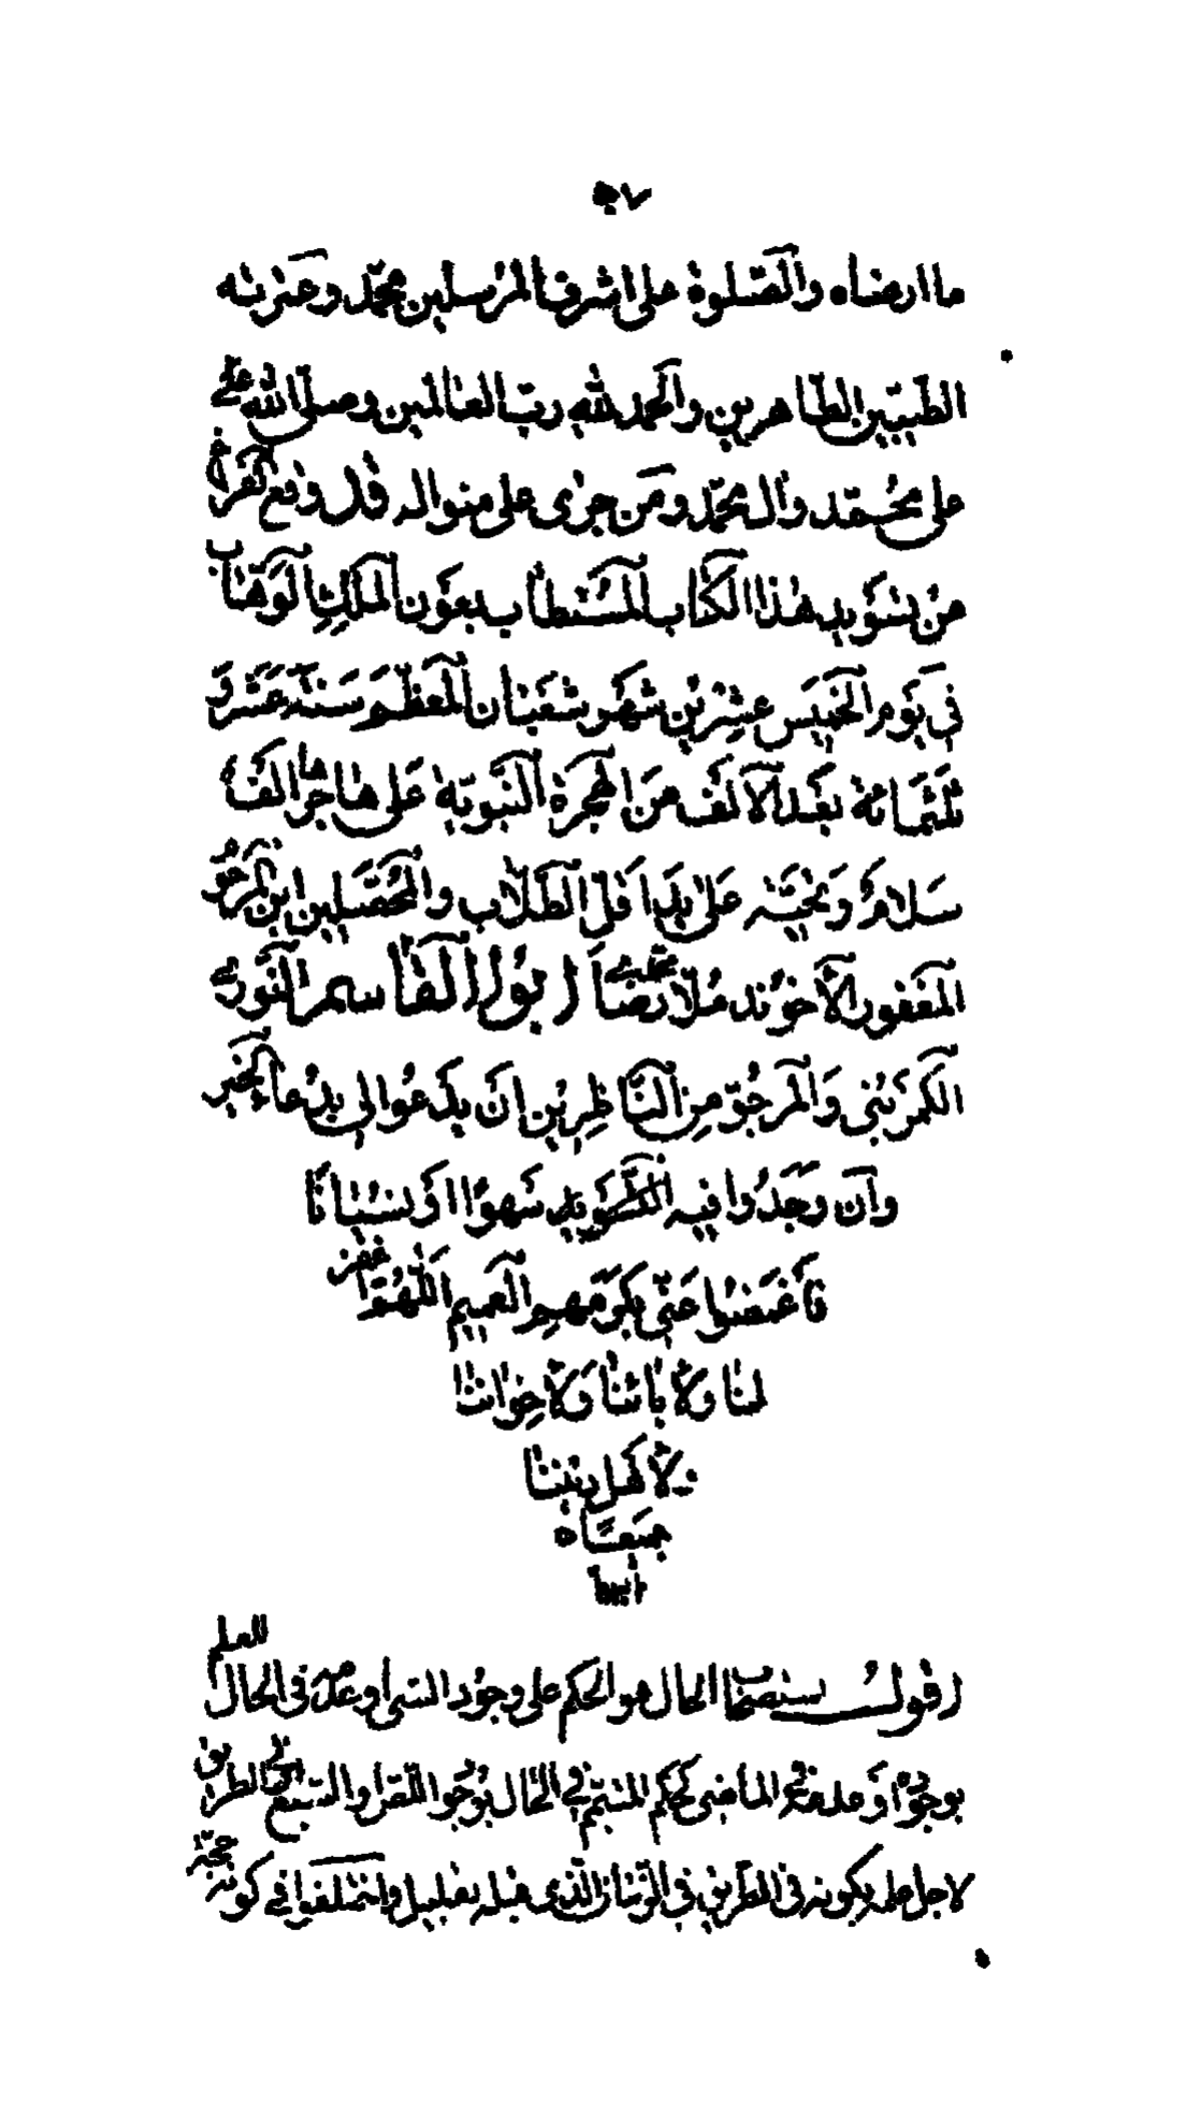 ٥٧
ما ارضاه والصّلوة على اشرف المرسلين محمّد وعترته
الطّيبّين الطّاهرين والحمد لله ربّ العالمين وصلى الله على
على محمّد وال محمّد ومن جرى على منواله قد وقع الفراغ
من تسويد هذا الكتاب المستطاب بعون الملك الوهّاب
في يوم الخميس عشرين شهر شعبان المعظم سنة عشر و
ثلثمائة بعد الالف من الهجرة النبويّة على هاجرها الف
سلام وتحيّة على يد اقل الطّلّاب والمحصّلين ابن المرحو
المغفور الاخوند ملّا رضا ابو القاسم النّوري
الكمربني والمرجوّ من النّاظرين ان يدعوا لى بدعا الخير
وان وجدوا فيه سهوًا او نسيانًا
فاغمضوا عنّي بكرمهم العميم اللّهمّ اغفر
لنا ولابائنا ولاخواننا
ولاهل ديننا
جميعًا
للعلم
اقول استصحاب الحال هو الحكم على وجود الشى او عدمه في الحال
بوجوده او عدمه في الماضى كحكم المتيمّم في الحال بوجوده الطريق
لاجل علمه بكونه في الطريق في الزّمان الّذى قبله بقليل واختلفوا في كونه حجّة